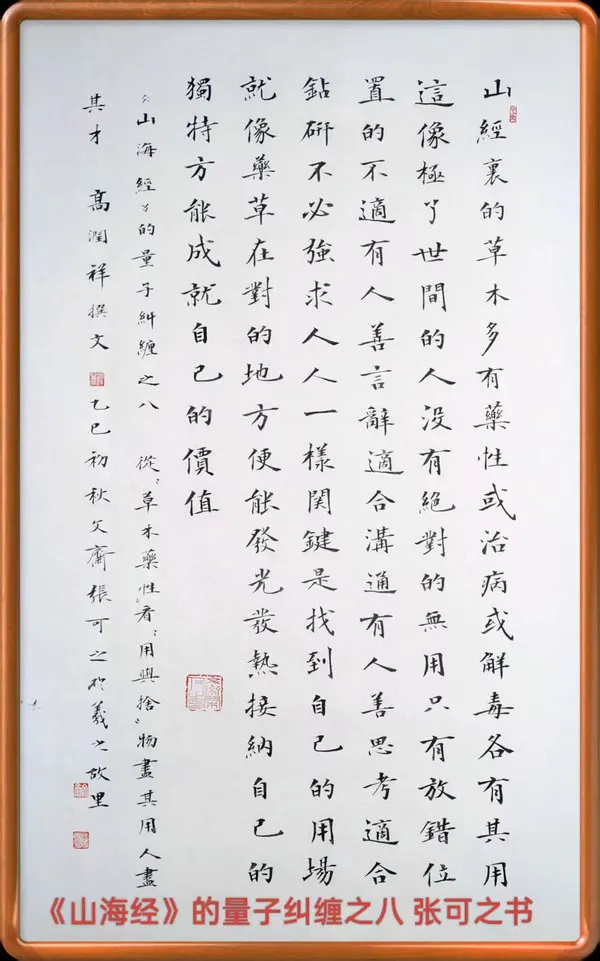 山經裏的草木多有藥性或治病或解毒各有其用
這像極了世間的人没有絕對的無用只有放錯位
置的不適有人善言辭適合溝通有人善思考適合
鉆研不必強求人人一樣関鍵是找到自己的用場
就像藥草在對的地方便能發光發熱接納自己的
獨特方能成就自己的價值
《山海經》的量子糾纏之八 從“草木藥性”看“用與捨”物盡其用人盡
其才 高潤祥撰文 乙巳初秋父齋張可之於羲之故里
《山海经》的量子纠缠之八 张可之书